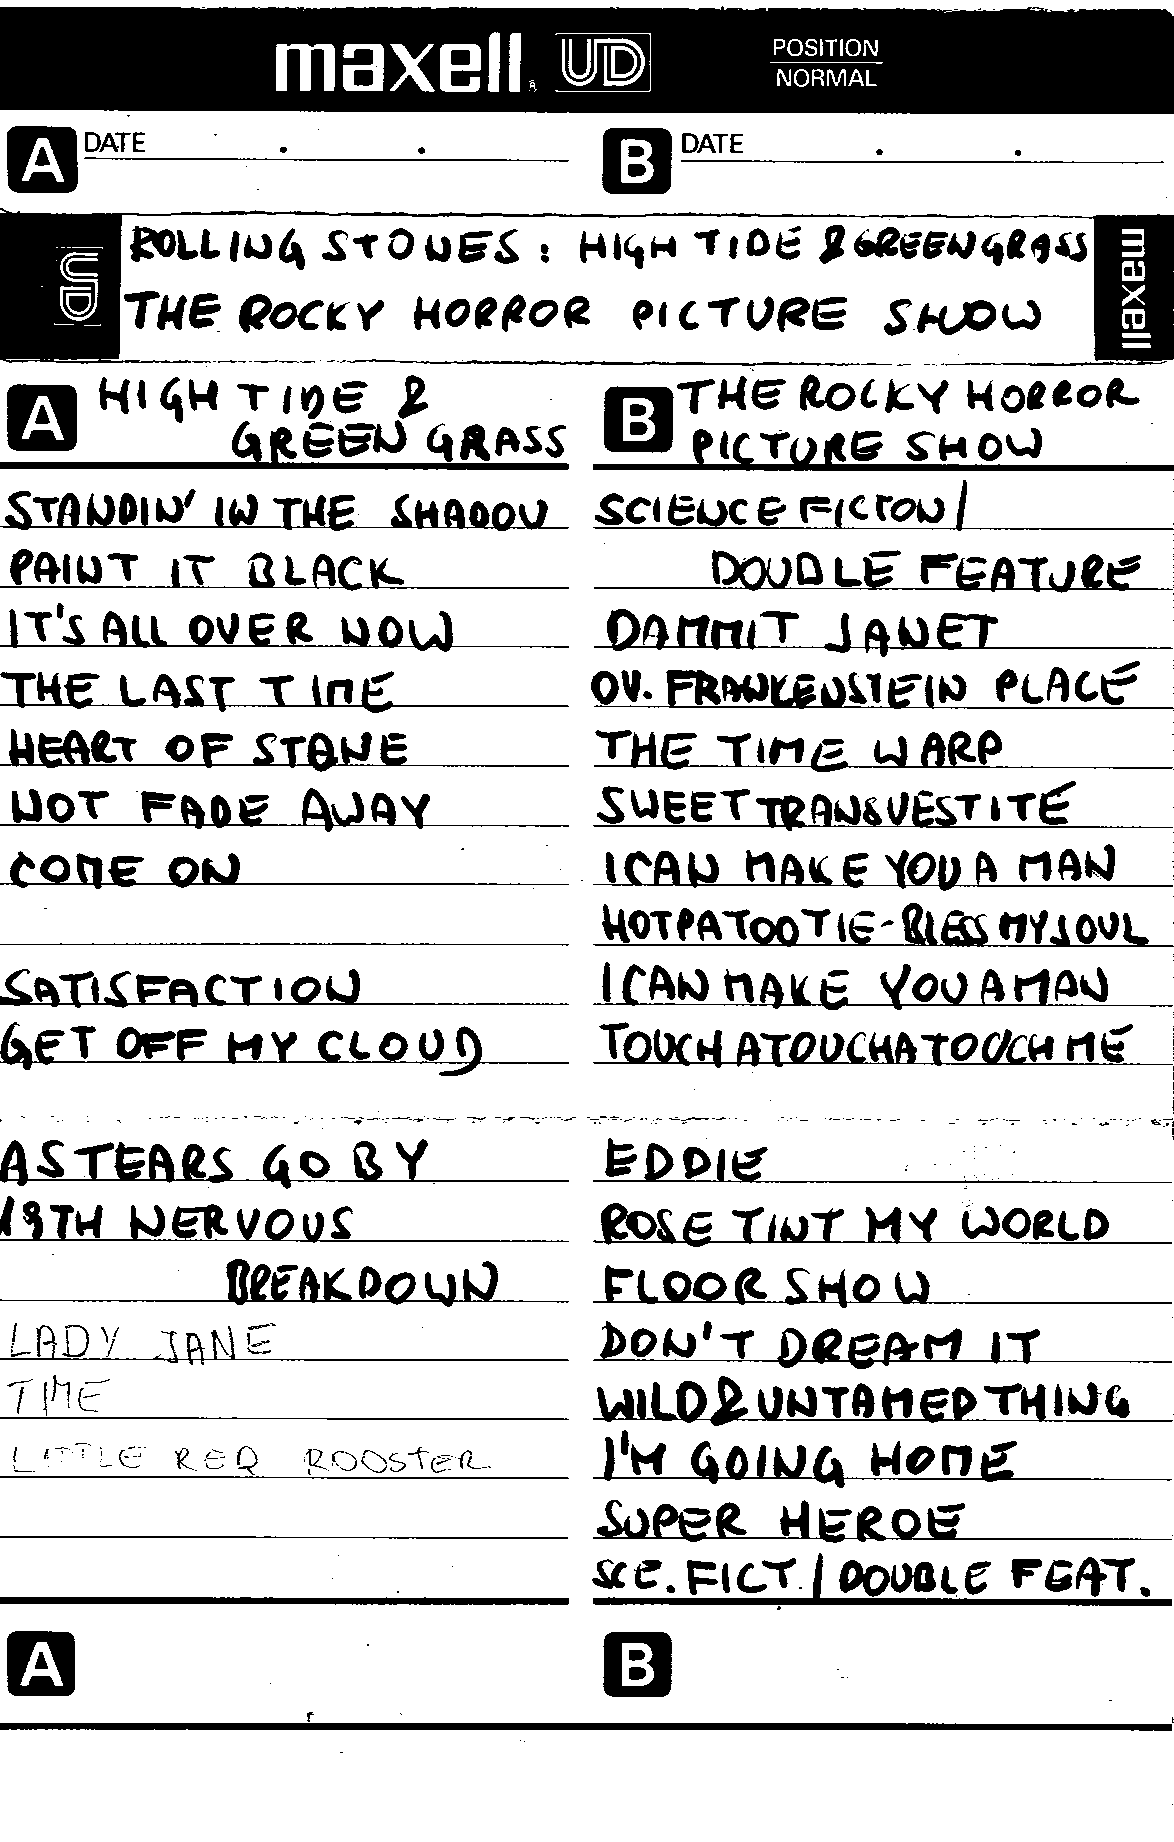 maxell UD
POSITION
NORMAL
A DATE . .
B DATE . .
UD
ROLLING STONES : HIGH TIDE & GREEN GRASS
THE ROCKY HORROR PICTURE SHOW
maxell
A HIGH TIDE &
GREEN GRASS
STANDIN' IN THE SHADOW
PAINT IT BLACK
IT'S ALL OVER NOW
THE LAST TIME
HEART OF STONE
NOT FADE AWAY
COME ON
SATISFACTION
GET OFF MY CLOUD
AS TEARS GO BY
19TH NERVOUS
BREAKDOWN
LADY JANE
TIME
LITTLE RED ROOSTER
A
B THE ROCKY HORROR
PICTURE SHOW
SCIENCE FICTON /
DOUBLE FEATURE
DAMMIT JANET
OV. FRANKENSTEIN PLACE
THE TIME WARP
SWEET TRANSVESTITE
I CAN MAKE YOU A MAN
HOT PATOOTIE - BLESS MY SOUL
I CAN MAKE YOU A MAN
TOUCH A TOUCH A TOUCH ME
EDDIE
ROSE TINT MY WORLD
FLOOR SHOW
DON'T DREAM IT
WILD & UNTAMED THING
I'M GOING HOME
SUPER HEROE
SCE. FICT. / DOUBLE FEAT.
B